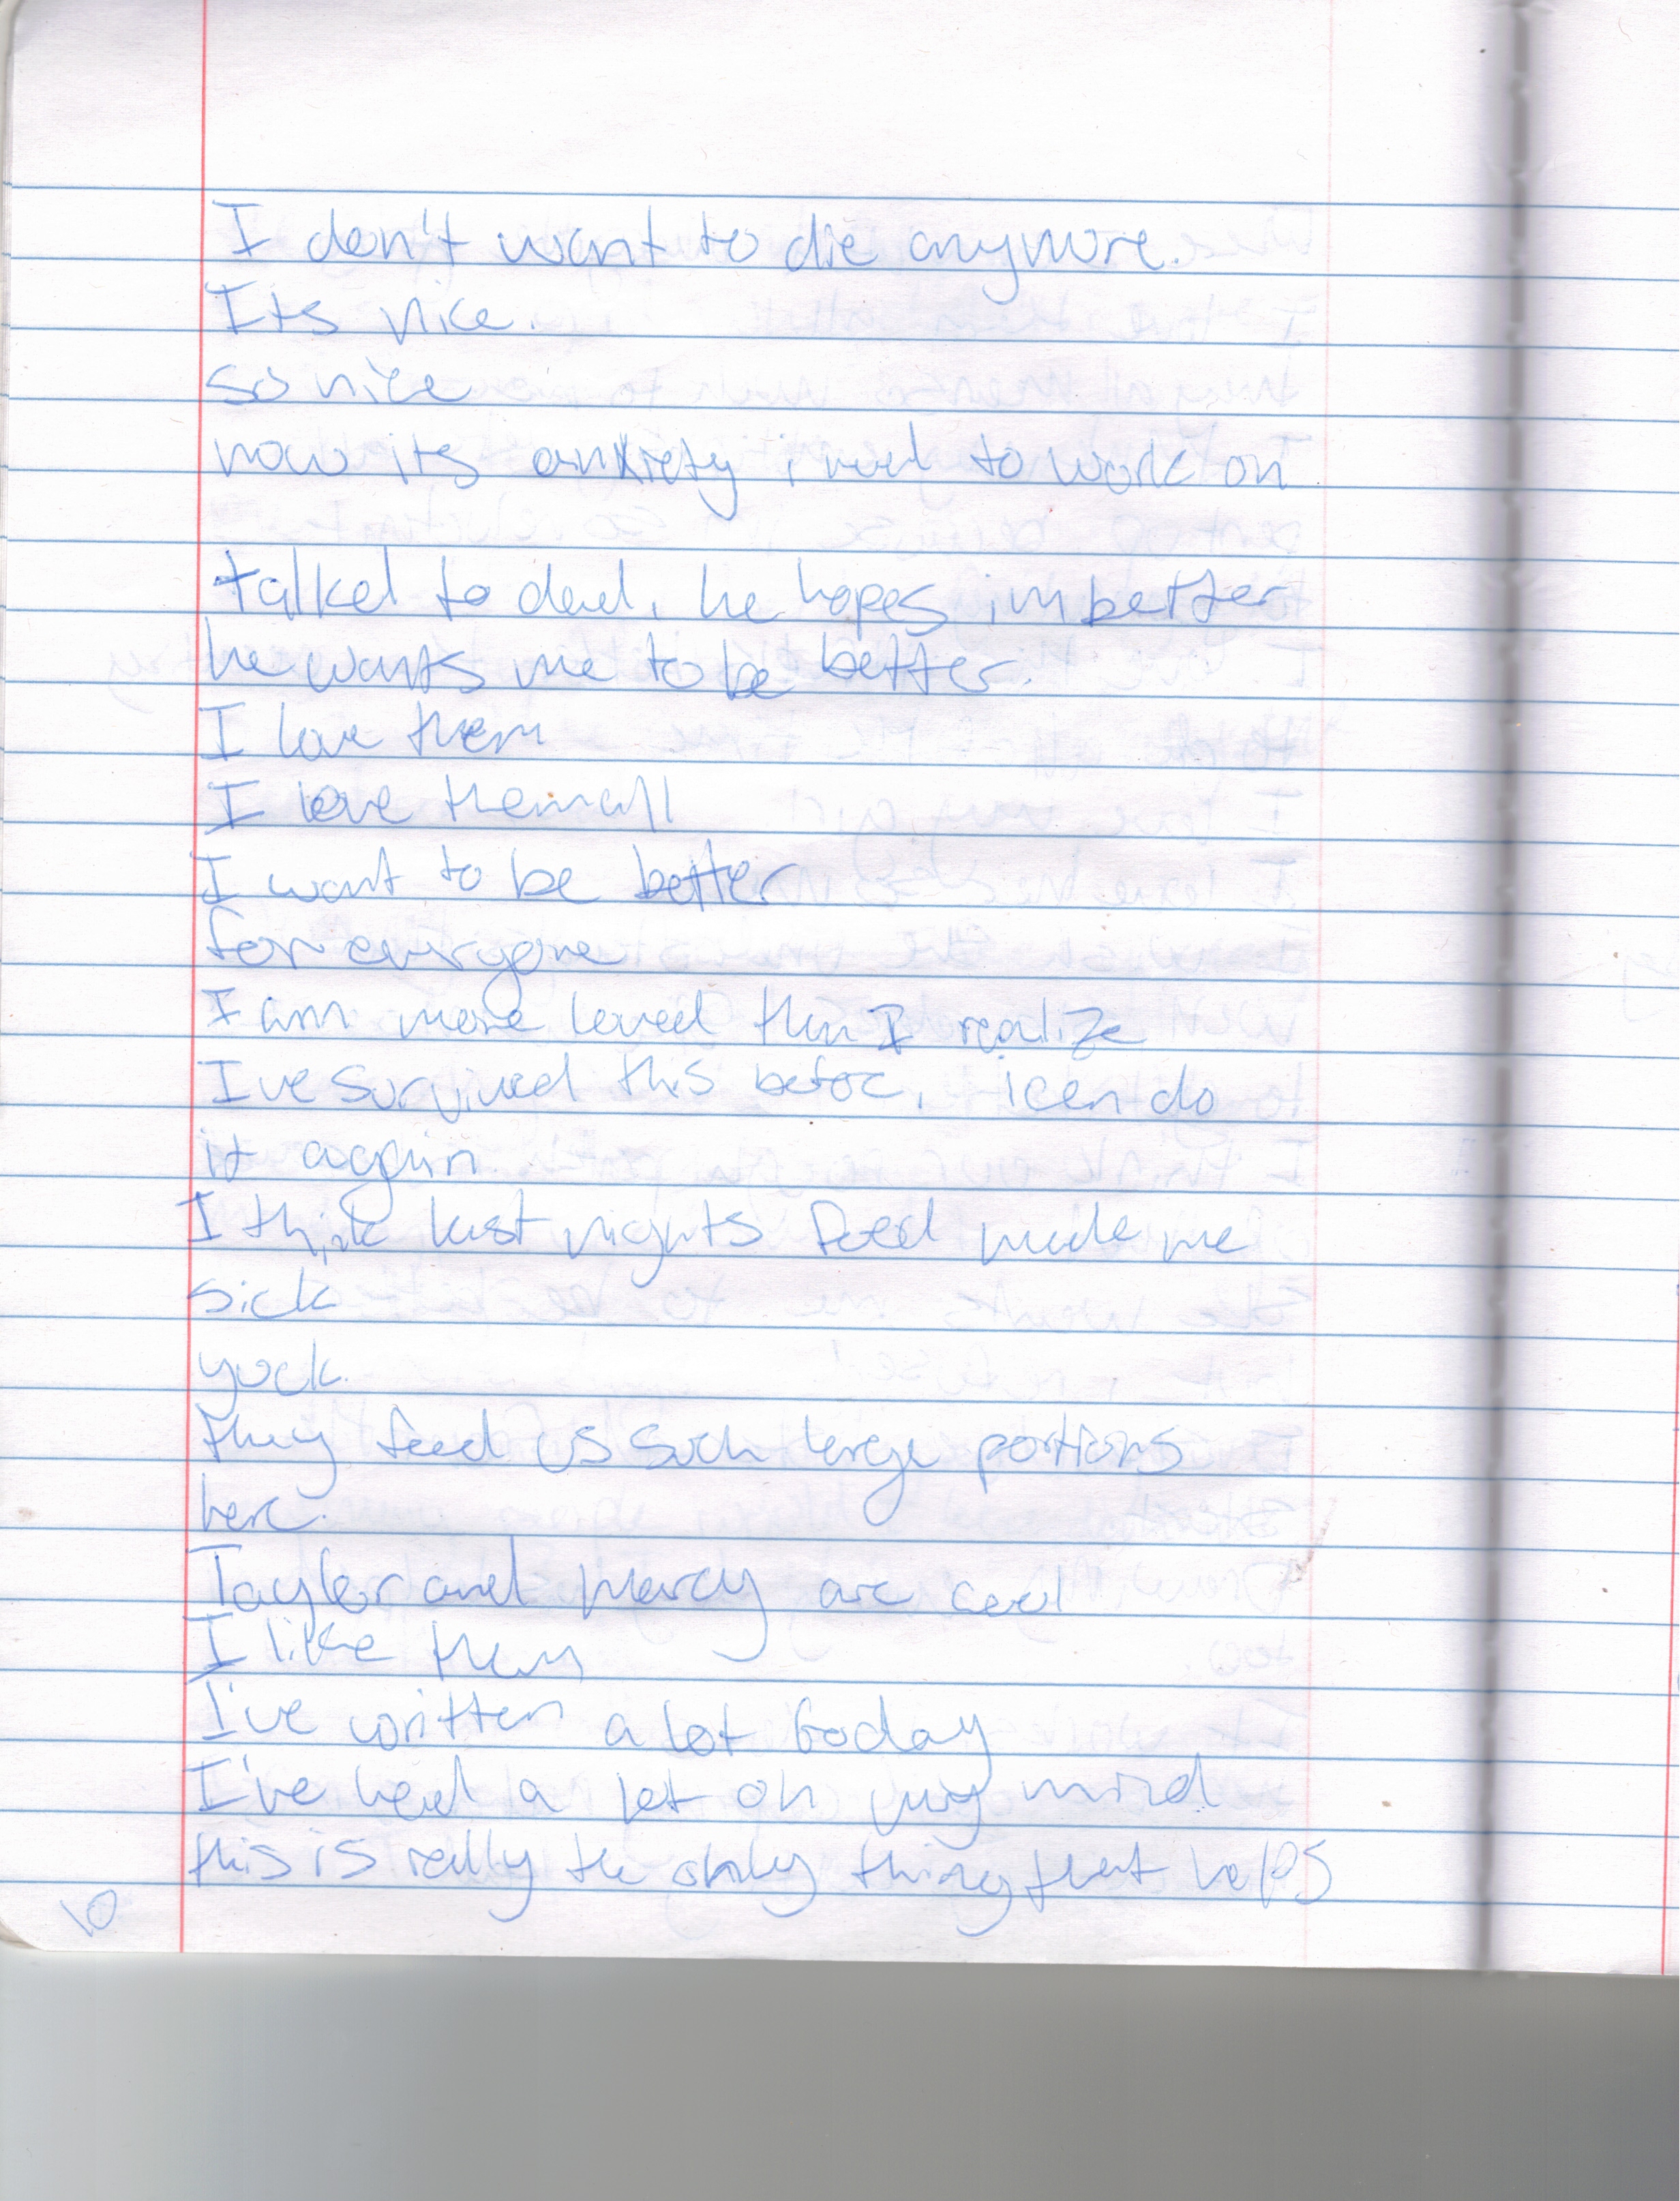 I don't want to die anymore.
Its nice.
so nice
now its anxiety i need to work on
talked to dad, he hopes im better
he wants me to be better.
I love them
I love them all
I want to be better
for everyone
I am more loved than I realize
I've survived this before, i can do
it again
I think last nights food made me
sick
yuck.
they feed us such large portions
here.
Taylor and Marcy are cool
I like them
I've written a lot today
I've had a lot on my mind
this is really the only thing that helps
10